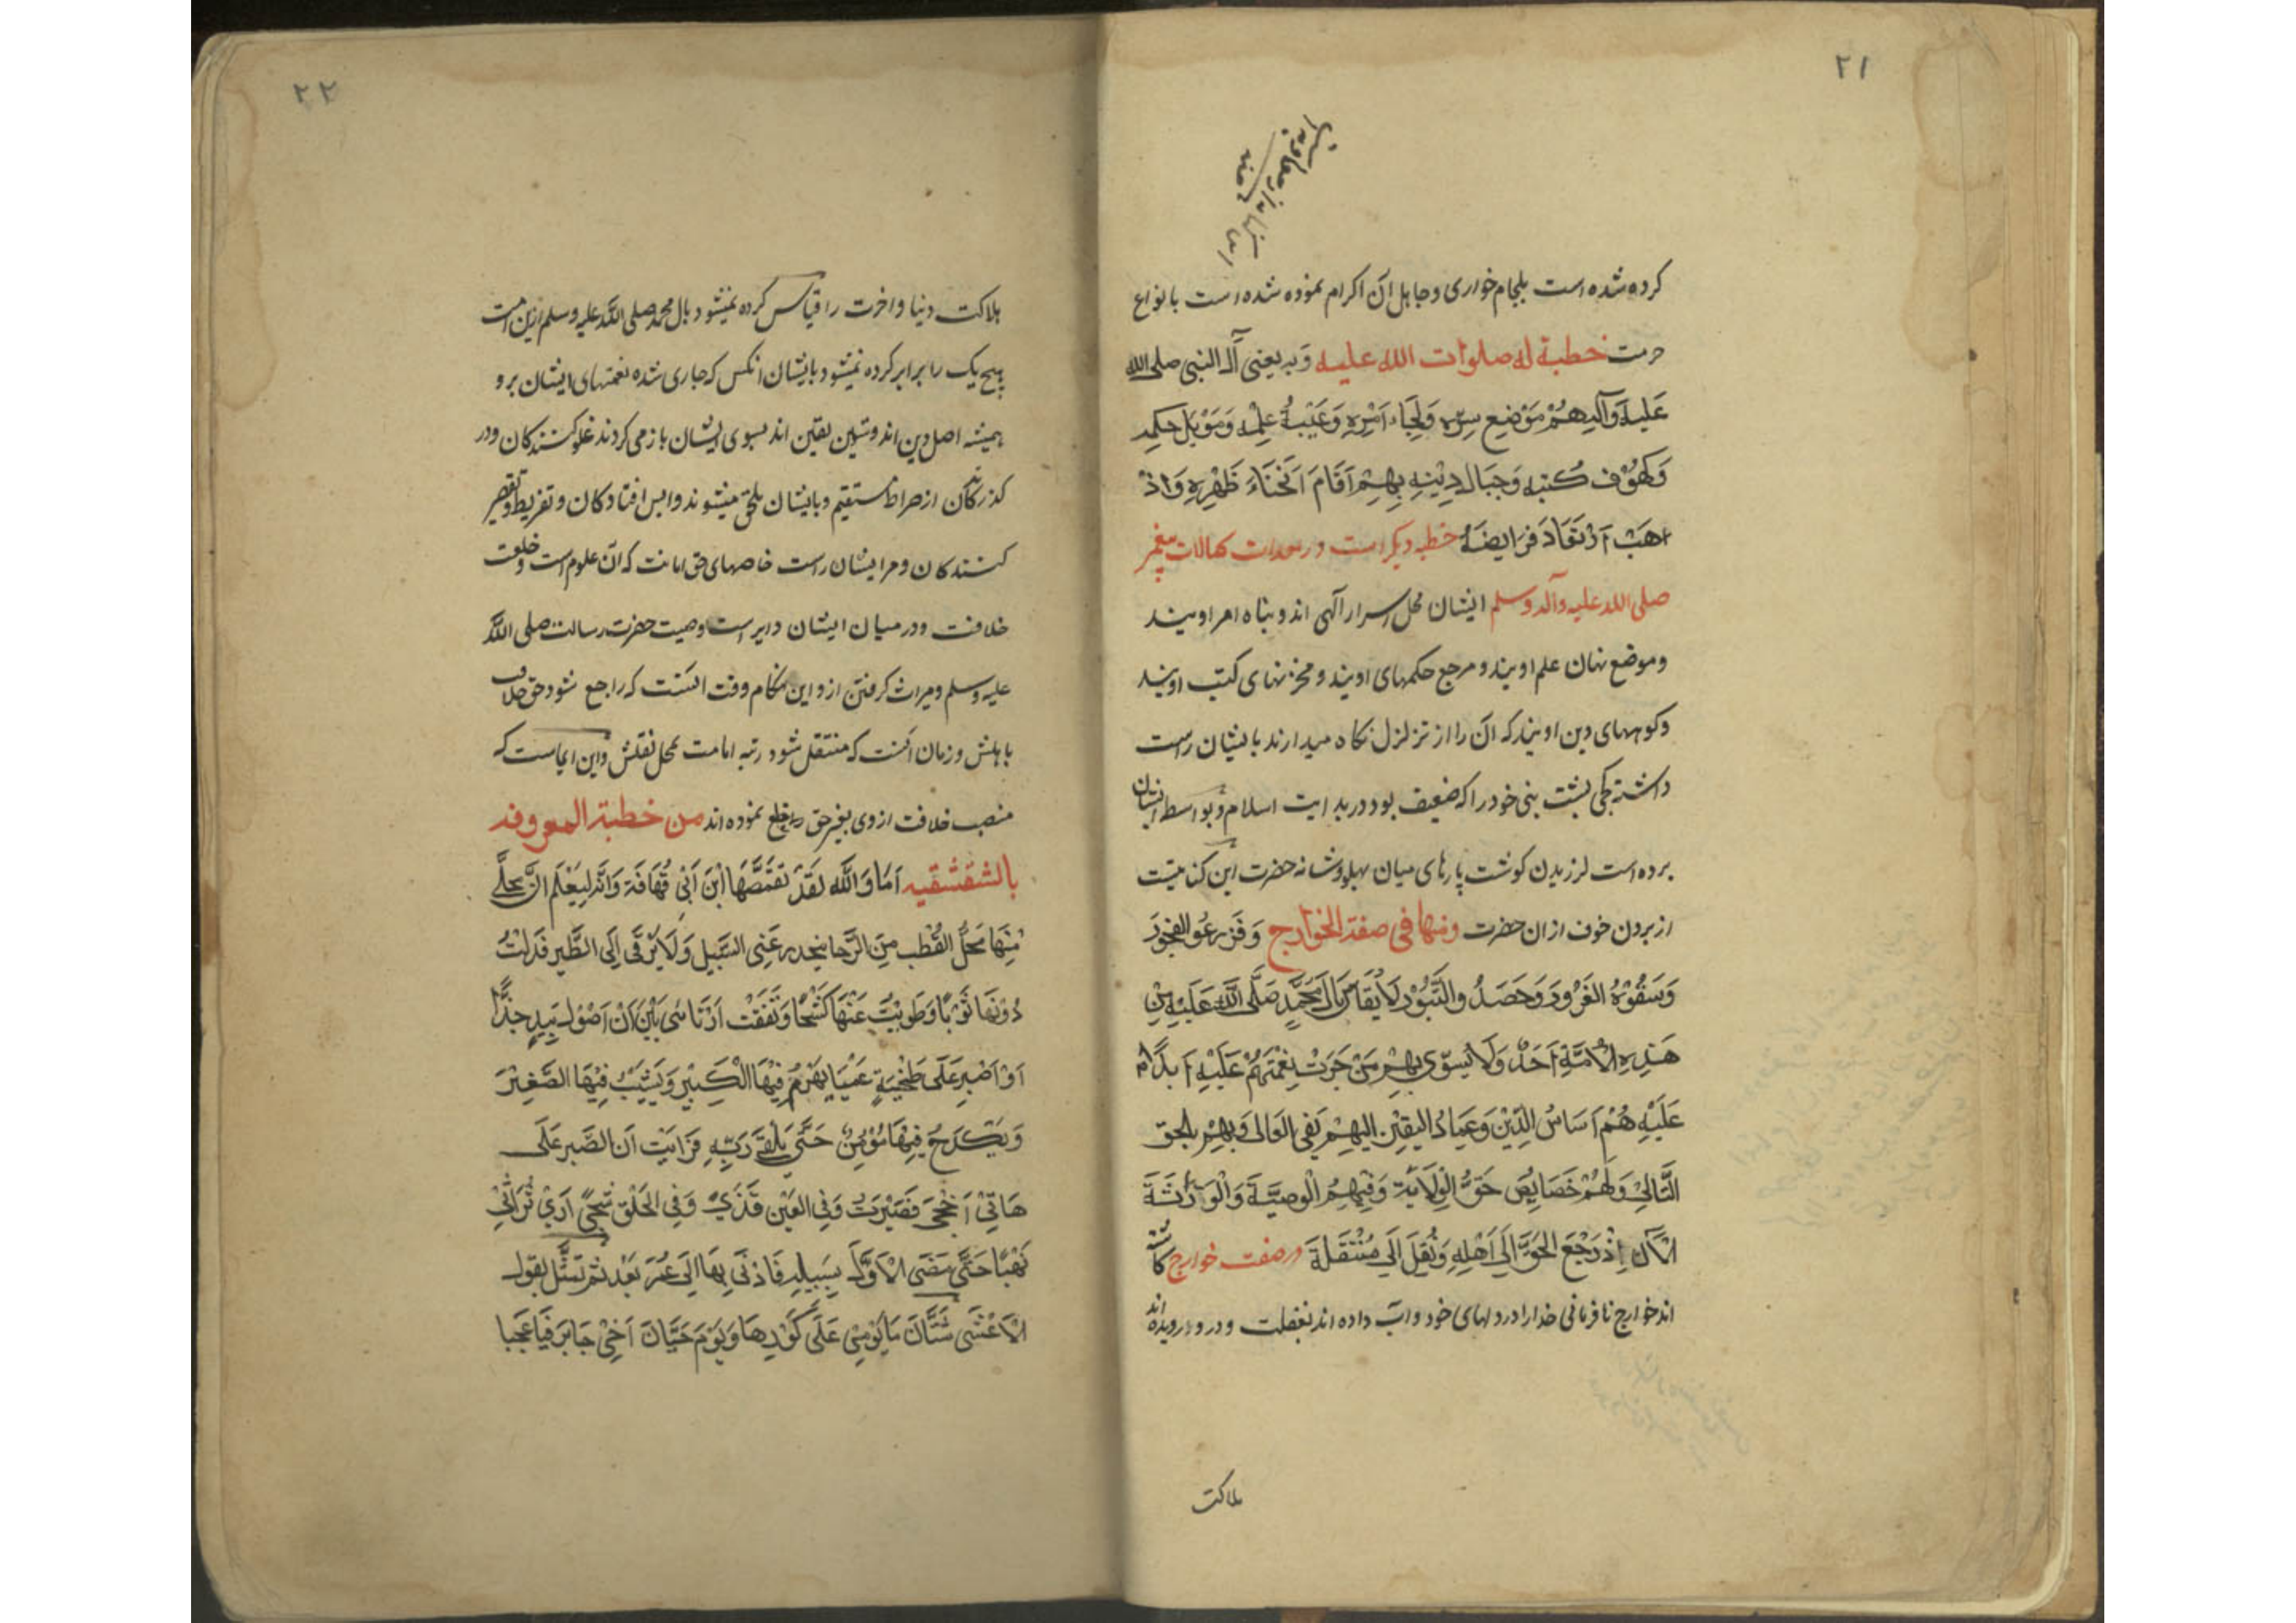 ٢١
کرده شده است بلجام خواری و جاهل آن اکرام نموده شده است بانواع
حرمت خطبة له صلوات الله عليه وبه يعنی آل النبی صلی الله
عليه وآله هُمْ مَوْضِع سِرِّه وَلَجَاءُ اَمْرِهِ وَعَيْبَةُ عِلْمِه وَمَوْئِل حِكَمِه
وَكهُوْف كُتبِه وَجبَال دِيْنِه بِهِمْ اَقَامَ اَنْحَنَاءَ ظَهْرِهِ وَاذْ
اهَبَ اَرْتعَادَ فَرَايِضَهُ خطبه دیکر است در کمالات پیغمبر
صلی الله علیه وآله وسلم ایشان محل اسرار آلهی اند و پناه امر اویند
و موضع نهان علم اویند و مرجع حکمهای اویند و مخزنهای کتب اویند
وکوههای دین اویند که آن را از تزلزل نکاه میدارند بایشان راست
داشته کجی پشت نبی خود را که ضعیف بود در بدایت اسلام و بواسطه ایشان
برده است لرزیدن کوشت پارهای میان پهلو و شانه حضرت این کنایتست
از بردن خوف از ان حضرت ومنها فی صفة الخوارج وَ زَرعُو الفجُورَ
وَسَقُوْهُ الغُرُورَ وَحَصَدُ والثَّبُوْر لَايُقَاسُ بِال مُحَمَّدٍ صَلَّى اللهُ عَلَيْهِ مِنْ
هَذِهِ الْاُمَّةِ اَحَدٌ وَلَا يُسوّى بِهِمْ مَنْ جَرَتْ نِعْمَتهُمْ عَلَيْهِ اَبَدًا
عَلَيْهِ هُمْ اَسَاسُ الدِّيْن وَعِمَادُ اليَقِيْنِ اليهِمْ يَفِى الغَالى وَبِهِمْ يلحَق
التَّالِى وَلَهُمْ خَصَايِصُ حَقُّ الْوِلَايَة وَفِيهِمُ الْوصِيَّةَ وَالْوَرَاثَةَ
الْاَنَ اِذْ رَجَعَ الحَقّ اِلَى اَهْلِهِ وَنُقِلَ اِلَى مُنْتَقَلَة در صفت خوارج کاشته
اند خوارج نافرمانی خدا را در دلهای خود و آب داده اند بغفلت و درویده اند
هلاکت
٢٢
هلاکت دنیا و اخرت را قیاس کرده نمیشود بال محمد صلی الله علیه وسلم ازین امت
هیچ یک را برابر کرده نمیشود بایشان انکس که جاری شده نعمتهای ایشان برو
همیشه اصل دین اند و ستون یقین اند بسوی ایشان باز می کردند غلو کنندکان و در
کذرندکان از صراط مستقیم و بایشان ملحق میشوند وابس افتادکان و تفریط و تقصیر
کنندکان و مر ایشان راست خاصهای حق امامت که آن علوم است و خلعت
خلافت و در میان ایشان دایر است وصیت حضرت رسالت صلی الله
علیه وسلم و میراث کرفتن از و این هنکام وقت آنست که راجع شود حق خلافت
باهلش و زمان آنست که منتقل شود رتبه امامت بمحل نقلش واین ایماست که
منصب خلافت از وی بغیر حق خلع نموده اند من خطبة المعروفه
بالشقشقيه اَمَا وَاللهِ لقَدْ تقَمَّصَهَا اِبْنَ اَبِى قُحَافَة وَاِنَّه لِيَعْلَم اَنَّ محلّى
مِنْهَا مَحَلُّ القُطْب مِنَ الرَّحا ينحدر عَنِى السَّيل وَلَا يَرْقَى اِلَى الطَّير فَدَلْتُ
دُوْنهَا ثَوْبًا وَطَوَيْتُ عَنْهَا كَشْحًا وَتَفَقَت اَرْتَائى بَيْنَ اَنْ اَصُول بِيَدٍ جذَّا
اَوْ اَصْبِر عَلَى طَخْيَةٍ عَمْيَا يهَرَمُ فِيْهَا الْكَبِيْر وَيَشِيْبُ فِيْهَا الصَّغِيْرَ
وَيَكْدَحُ فِيْهَا مُوْمِنٌ حَتَّى يَلقَى رَبِّه فَرَايَت اَن الصَّبرعَلَى
هَاتّى اَحْجَى فَصَبَرْتُ وَفِى العَيْن قَذًى وَفِى الحَلْق شَجًى اَرَى تُرَاثِى
نَهْبًا حَتَّى مَضَى الْاَوَّل بِسَبِيلِه فَادْلَى بِهَا اِلَى عُمَرَ بَعْد ثم تمثَّل بقول
الْاَعْشَى شَتَّانَ مَا يَوْمِى عَلَى كُوْرِهَا وَيَوْمَ حَيَّانَ اَخِى جَابرَ فَيَا عَجَبا